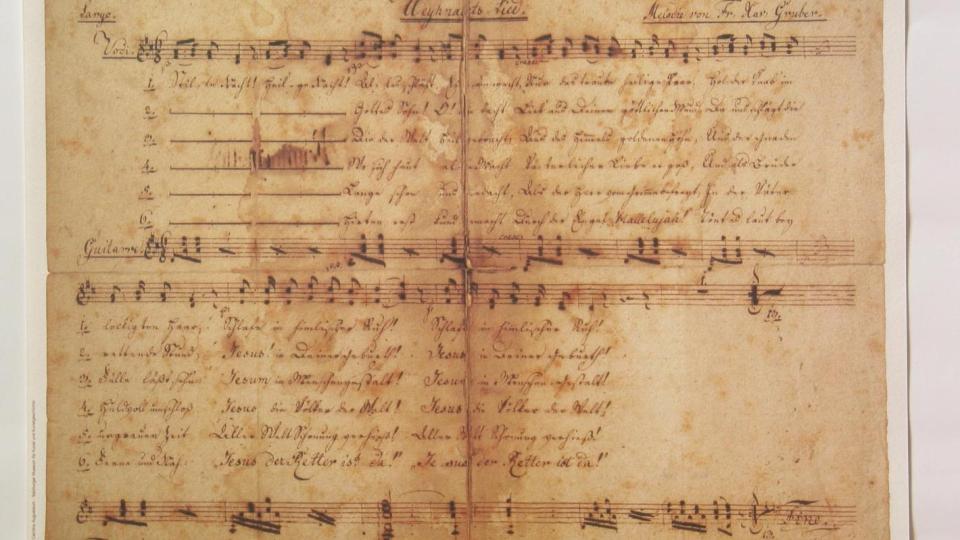 Largo. Weyhnachts-Lied. Melodie von Fr. Xav. Gruber.
Voci.
1. Stille Nacht! Heilige Nacht! Alles schläft, einsam wacht, Nur das traute heilige Paar. Holder Knab im
2. Gottes Sohn! O! wie lacht Lieb aus Deinem göttlichen Mund, Da uns schlägt die
3. Die der Welt Heil gebracht; Aus des Himmels goldenen Höhn, Aus der Gnaden
4. Wo sich heut alle Macht Väterlicher Liebe ergoß, Und als Bruder
5. Lange schon uns bedacht, Als der Herr vom Grimme befreyt, In der Väter
6. Hirten erst kund gemacht Durch der Engel Hallelujah! Tönt es laut bey
Guitarre.
1. lockigten Haar; Schlafe in himlischer Ruh! Schlafe in himlischer Ruh!
2. rettende Stund. Jesus! in Deiner Geburth! Jesus in Deiner Geburth!
3. Fülle läßt sehn Jesum in Menschengestalt! Jesum in Menschengestalt!
4. Huldvoll umschloß Jesus die Völker der Welt! Jesus die Völker der Welt!
5. urgrauen Zeit Aller Welt Schonung verhieß! Aller Welt Schonung verhieß!
6. Ferne und Nah: Jesus der Retter ist da!" Jesus der Retter ist da!"
Fine.